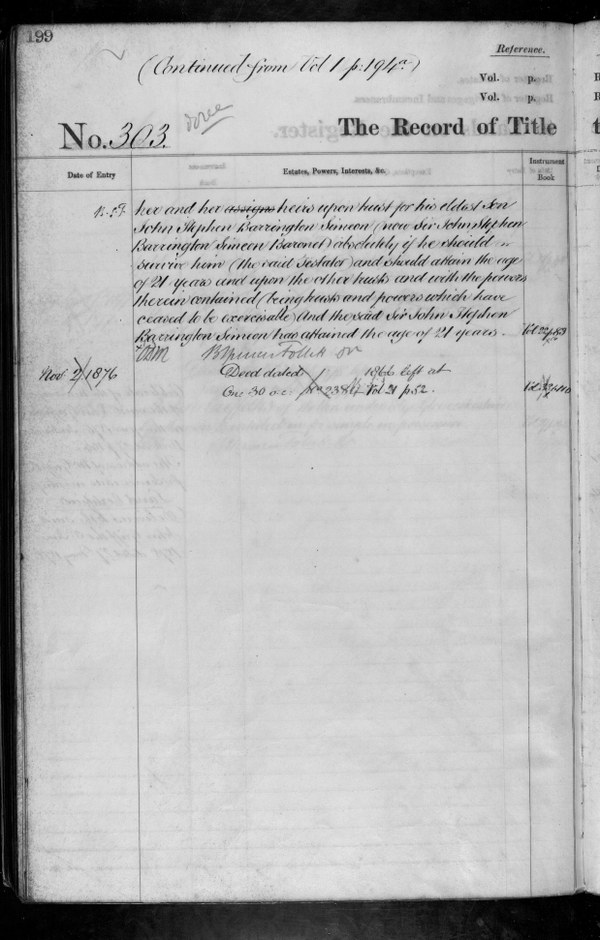 199
(Continued from Vol 1 p: 194a)
Reference.
Vol. p.
Vol. p.
No. 303.
The Record of Title
Date of Entry
Estates, Powers, Interests, &c.
Instrument Book
her and her assigns heirs upon trust for his eldest Son
John Stephen Barrington Simeon (now Sir John Stephen
Barrington Simeon Baronet) absolutely if he should
survive him (the said Testator) and should attain the age
of 21 years and upon the other trusts and with the powers
therein contained (being trusts and powers which have
ceased to be exercisable) And the said Sir John Stephen
Barrington Simeon has attained the age of 21 years.
Nov. 2 1876
Deed dated 1866 left at
On: 30 o.c. Vol 21 p. 52.